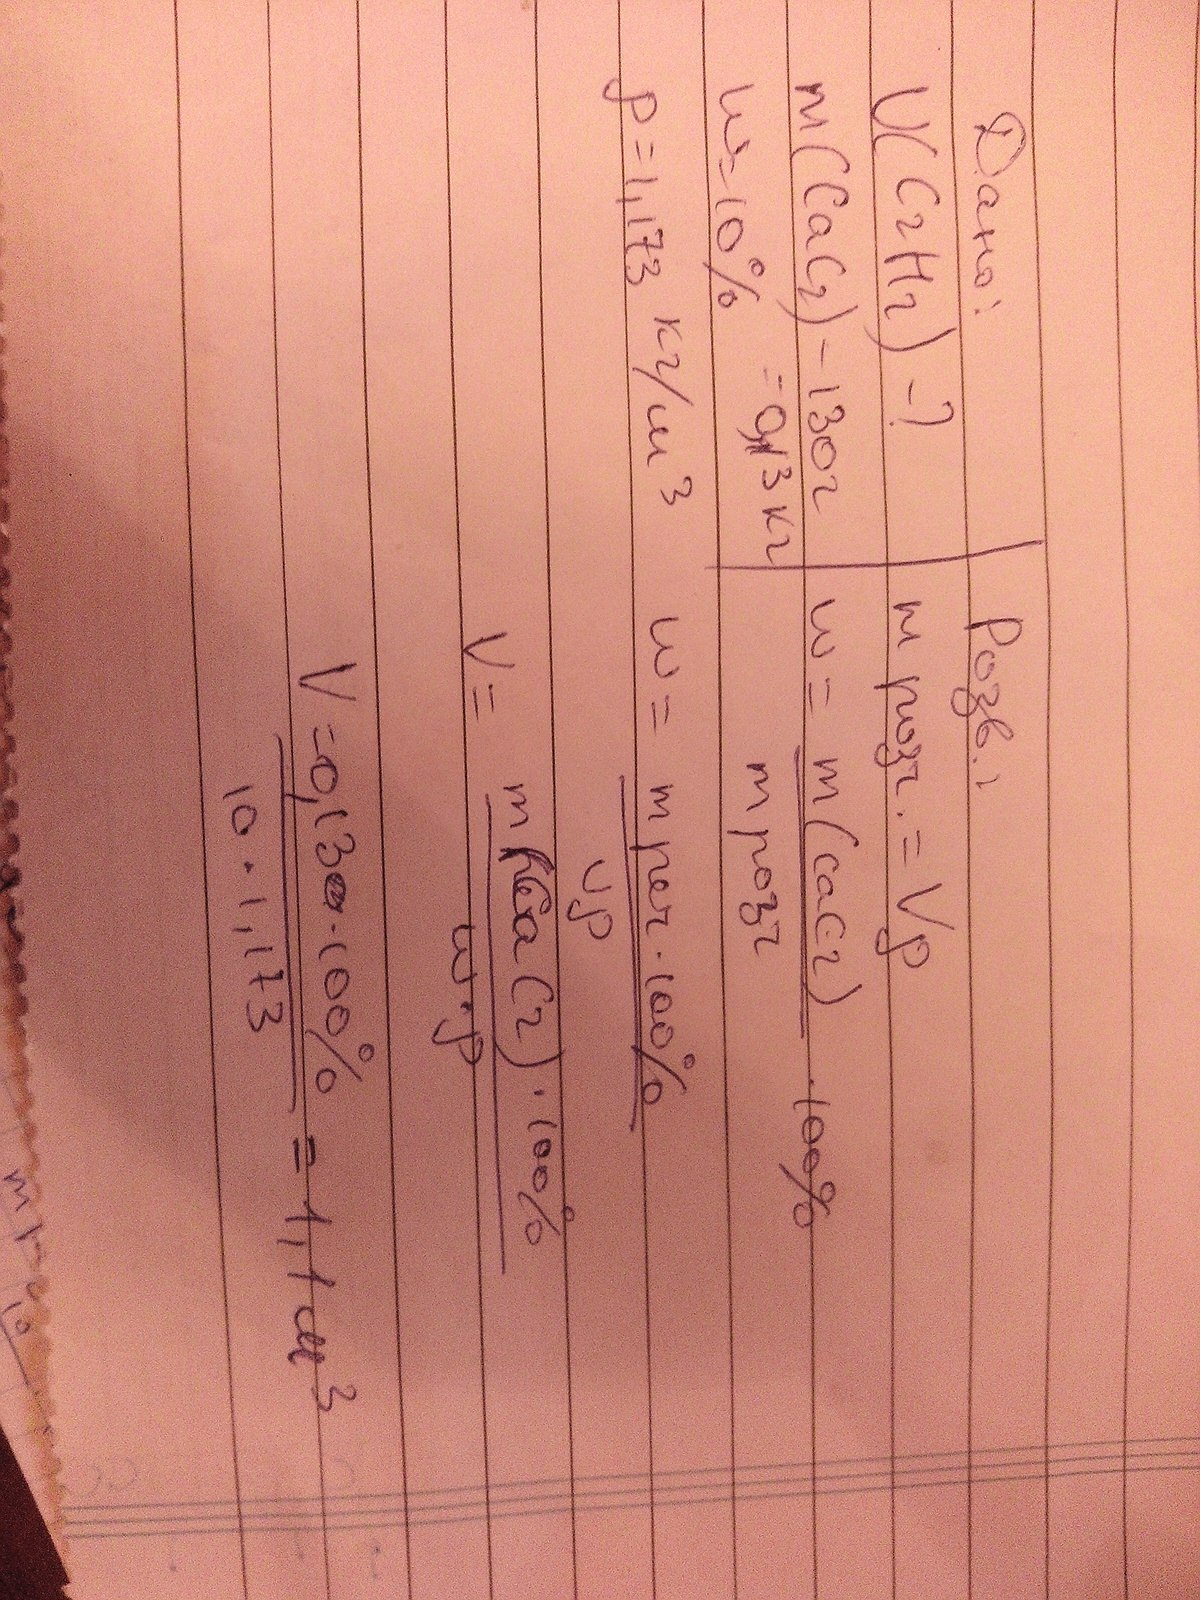 Дано:
V(C2H2) -?
m(CaC2) - 130г
= 0,13 кг
w = 10%
ρ = 1,173 кг/м³
Розв.:
m розч. = Vρ
w = m(CaC2) / m розч · 100%
w = m реч. · 100% / Vρ
V = m(CaC2) · 100% / w · ρ
V = 0,130 · 100% / 10 · 1,173 = 1,1 м³